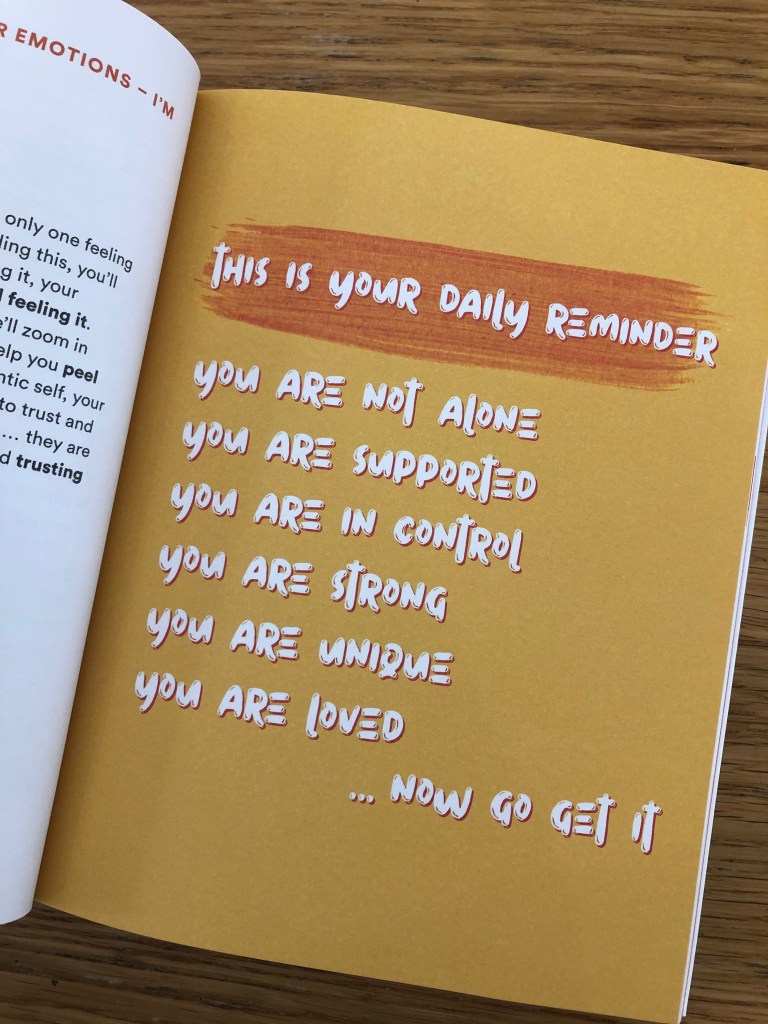 EMOTIONS – I'M
only one feeling
this, you'll
it, your
feeling it.
zoom in
you peel
self, your
to trust and
... they are
trusting
THIS IS YOUR DAILY REMINDER
YOU ARE NOT ALONE
YOU ARE SUPPORTED
YOU ARE IN CONTROL
YOU ARE STRONG
YOU ARE UNIQUE
YOU ARE LOVED
... NOW GO GET IT